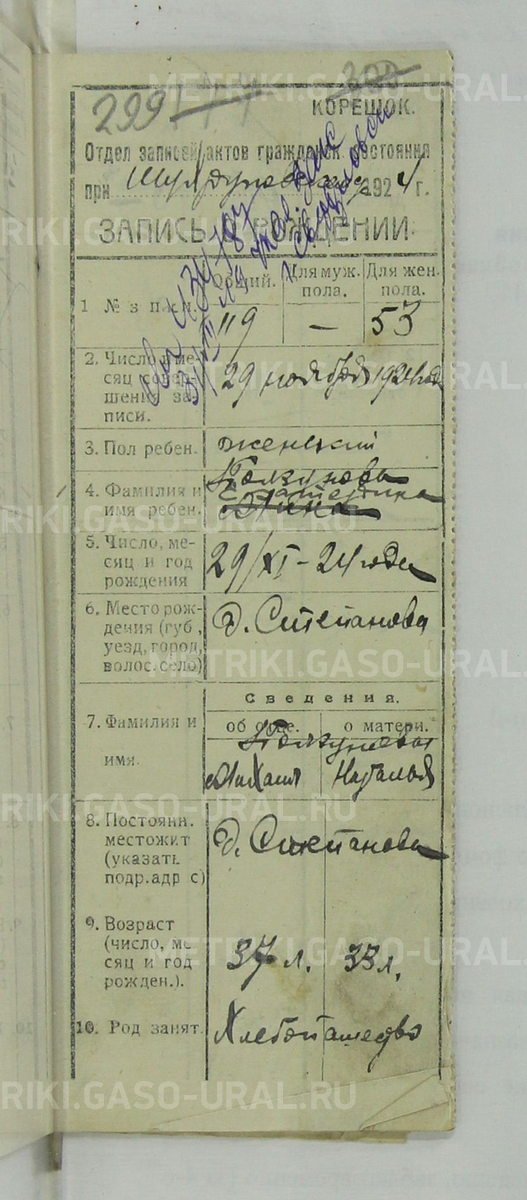 299
300
КОРЕШОК.
Отдел записей актов гражданск. состояния
при 1924 г.
ЗАПИСЬ О РОЖДЕНИИ.
Общий. Для муж. пола. Для жен. пола.
1 № з писи. 119 — 53
2. Число, ме-
сяц совер-
шения за-
писи.
29 ноября 1924 года
3. Пол ребен. женский
4. Фамилия и
имя ребен.
Екатерина
5. Число, ме-
сяц и год
рождения
29/XI-24 года
6. Место рож-
дения (губ.,
уезд, город,
волос. село)
д. Степанова
Сведения.
об отце. о матери.
7. Фамилия и
имя.
Михаил Наталья
8. Постоянн.
местожит
(указать
подр. адр с)
д. Степанова
9. Возраст
(число, ме
сяц и год
рожден.).
37 л. 33 л.
10. Род занят. Хлебопашество
METRIKI.GASO-URAL.RU